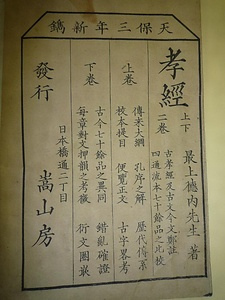 天保三年新鐫
孝經 上下 二卷
最上德内先生 著
古孝經及古文今文鄭註
四通流本七十餘品之比校
上卷
傳来大綱 孔序之解 歴代傳系
校本提目 便覧正文 古字畧考
下卷
古今七十餘品之異同 錯亂確證
每章對文押韻之考徴 衍文圏裁
發行
日本橋通二丁目
嵩山房